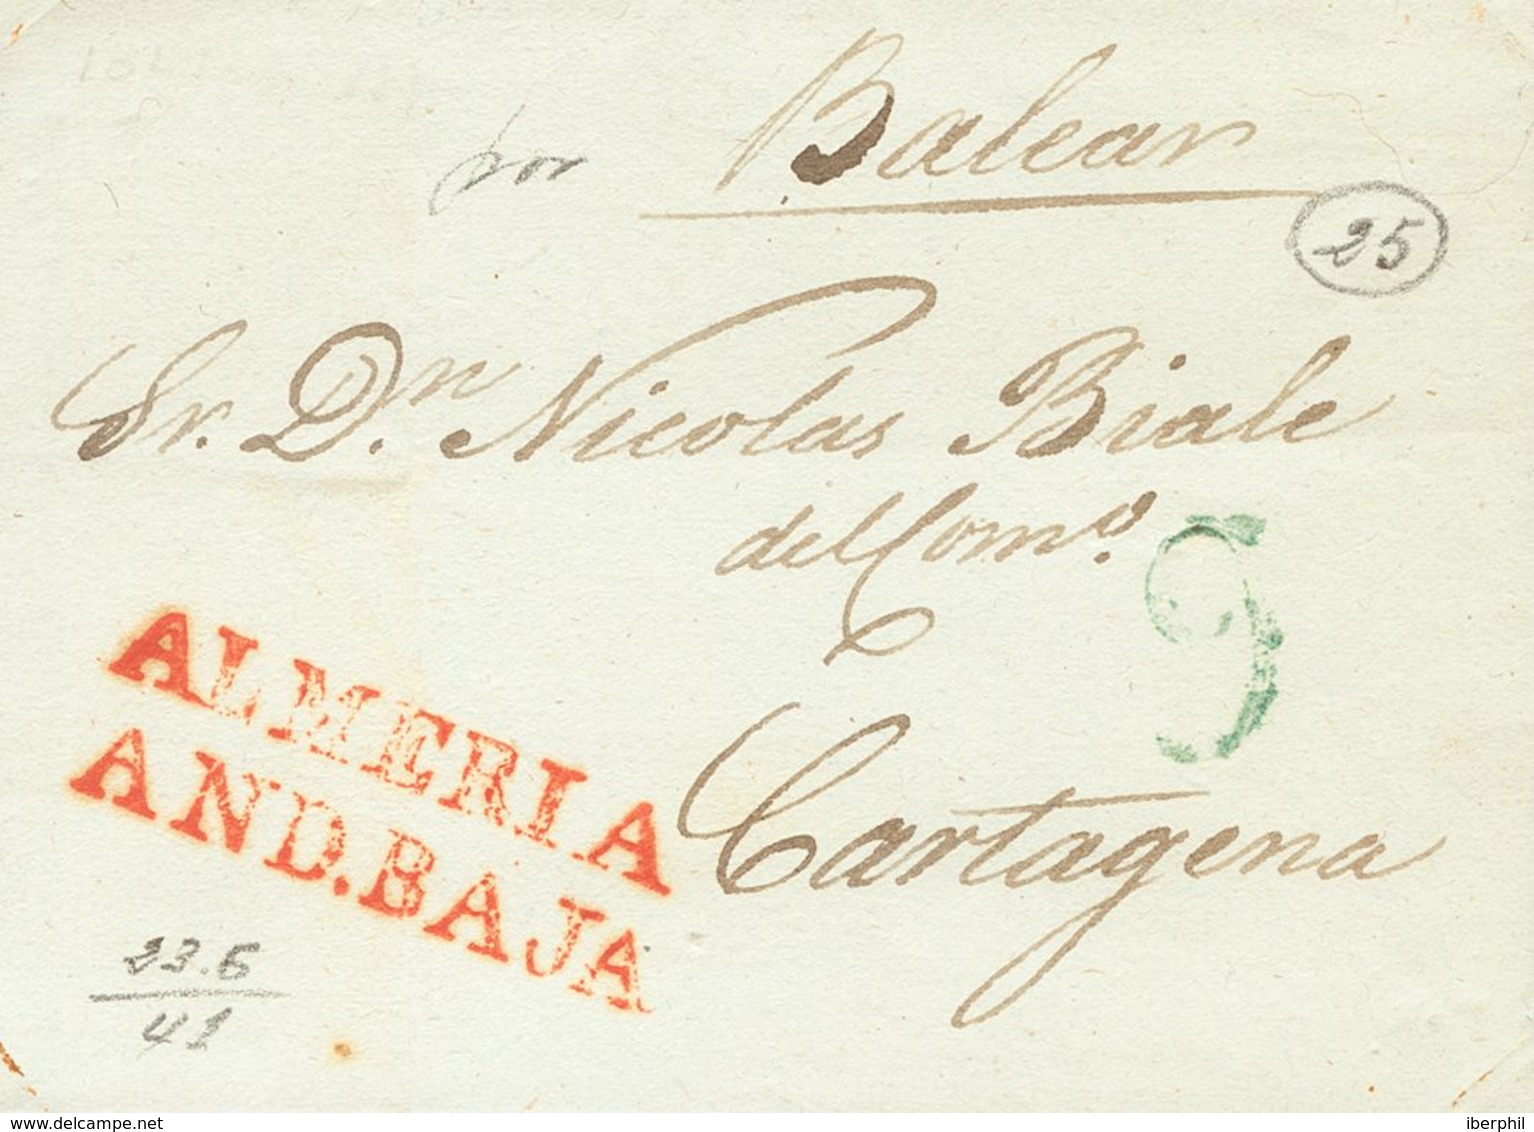 por Balear
25
Sr. Dn. Nicolas Biale
del Como.
9
Cartagena
ALMERIA
AND.BAJA
23.6
41
delcampe.net
iberphil